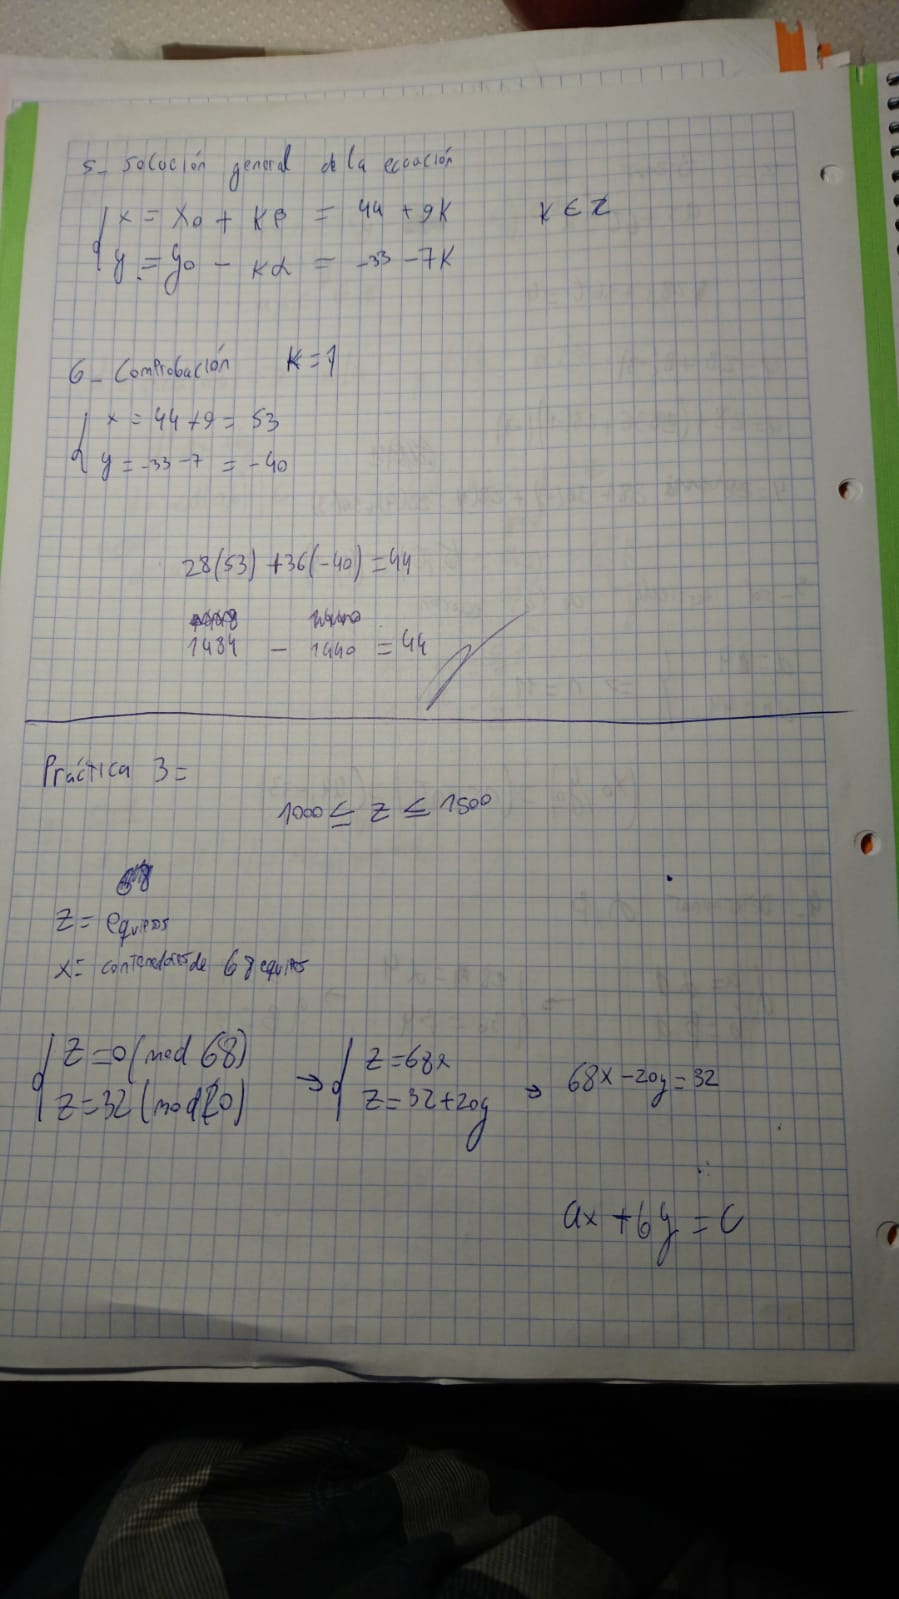 5- Solución general de la ecuación
x = x0 + kβ = 44 + 9k k ∈ Z
y = y0 - kα = -33 - 7k
6- Comprobación k=1
x = 44+9 = 53
y = -33-7 = -40
28(53) + 36(-40) = 44
1484 - 1440 = 44
Práctica 3=
1000 ≤ z ≤ 1500
z = equipos
x = contenedores de 68 equipos
z = 0 (mod 68) → z = 68x → 68x - 20y = 32
z = 32 (mod 20) z = 32+20y
ax + by = c